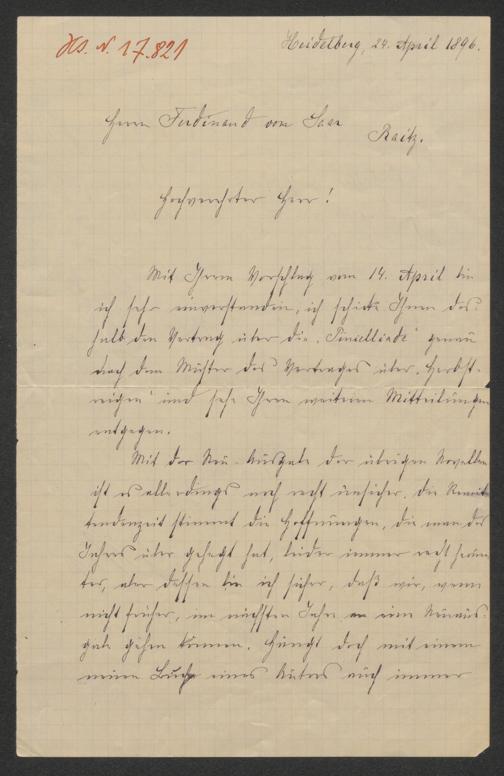 Hs. N. 17.821
Heidelberg, 24. April 1896.
Herrn Ferdinand von Saar
Raitz.
Hochverehrter Herr!
Mit Ihrem Vorschlag vom 14. April bin
ich sehr einverstanden, ich schicke Ihnen des-
halb den Vertrag über die „Pincelliade" genau
nach dem Muster des Vertrages über „Herbst-
reigen" und sehe Ihren weiteren Mitteilungen
entgegen.
Mit der Neu-Ausgabe der übrigen Novellen
ist es allerdings noch recht unsicher. Die Remit-
tendenzeit stimmt die Hoffnungen, die man des
Jahres über gehegt hat, leider immer recht herun-
ter, aber dessen bin ich sicher, daß wir, wenn
nicht früher, im nächsten Jahr an eine Neuaus-
gabe gehen können. Hängt doch mit einem
neuen Buch eines Autors auch immer